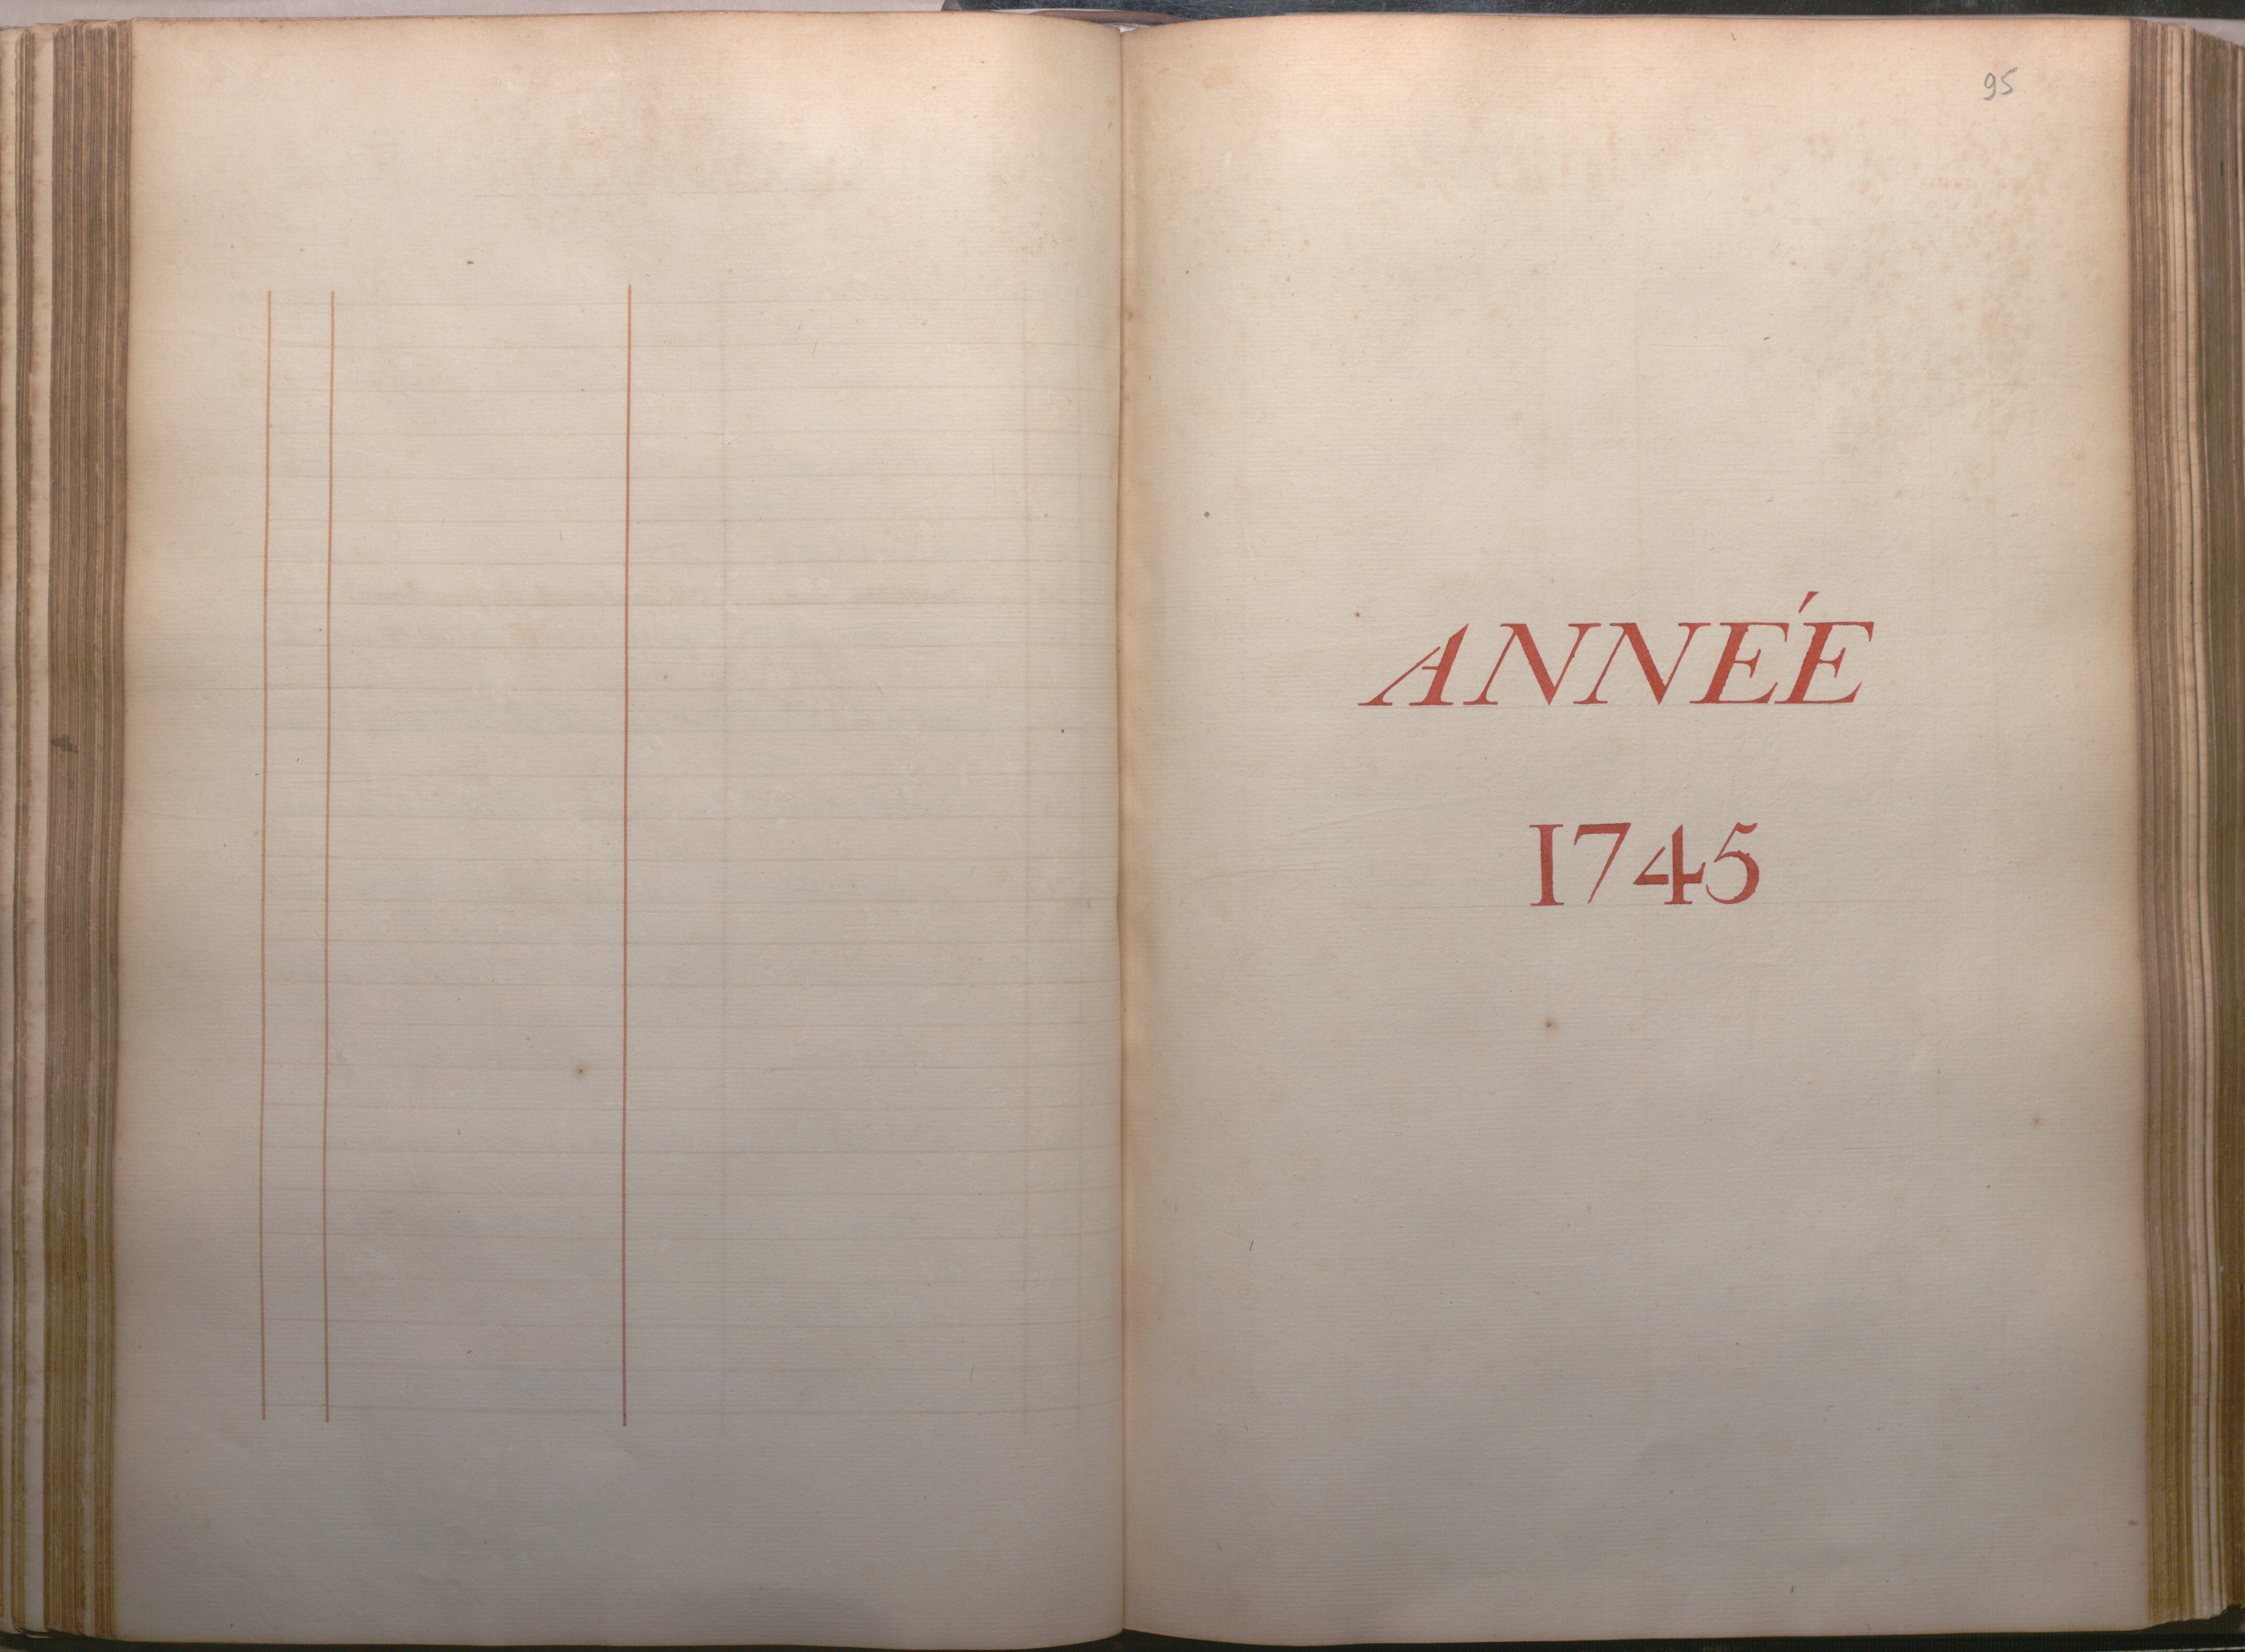 95
ANNÉE
1745